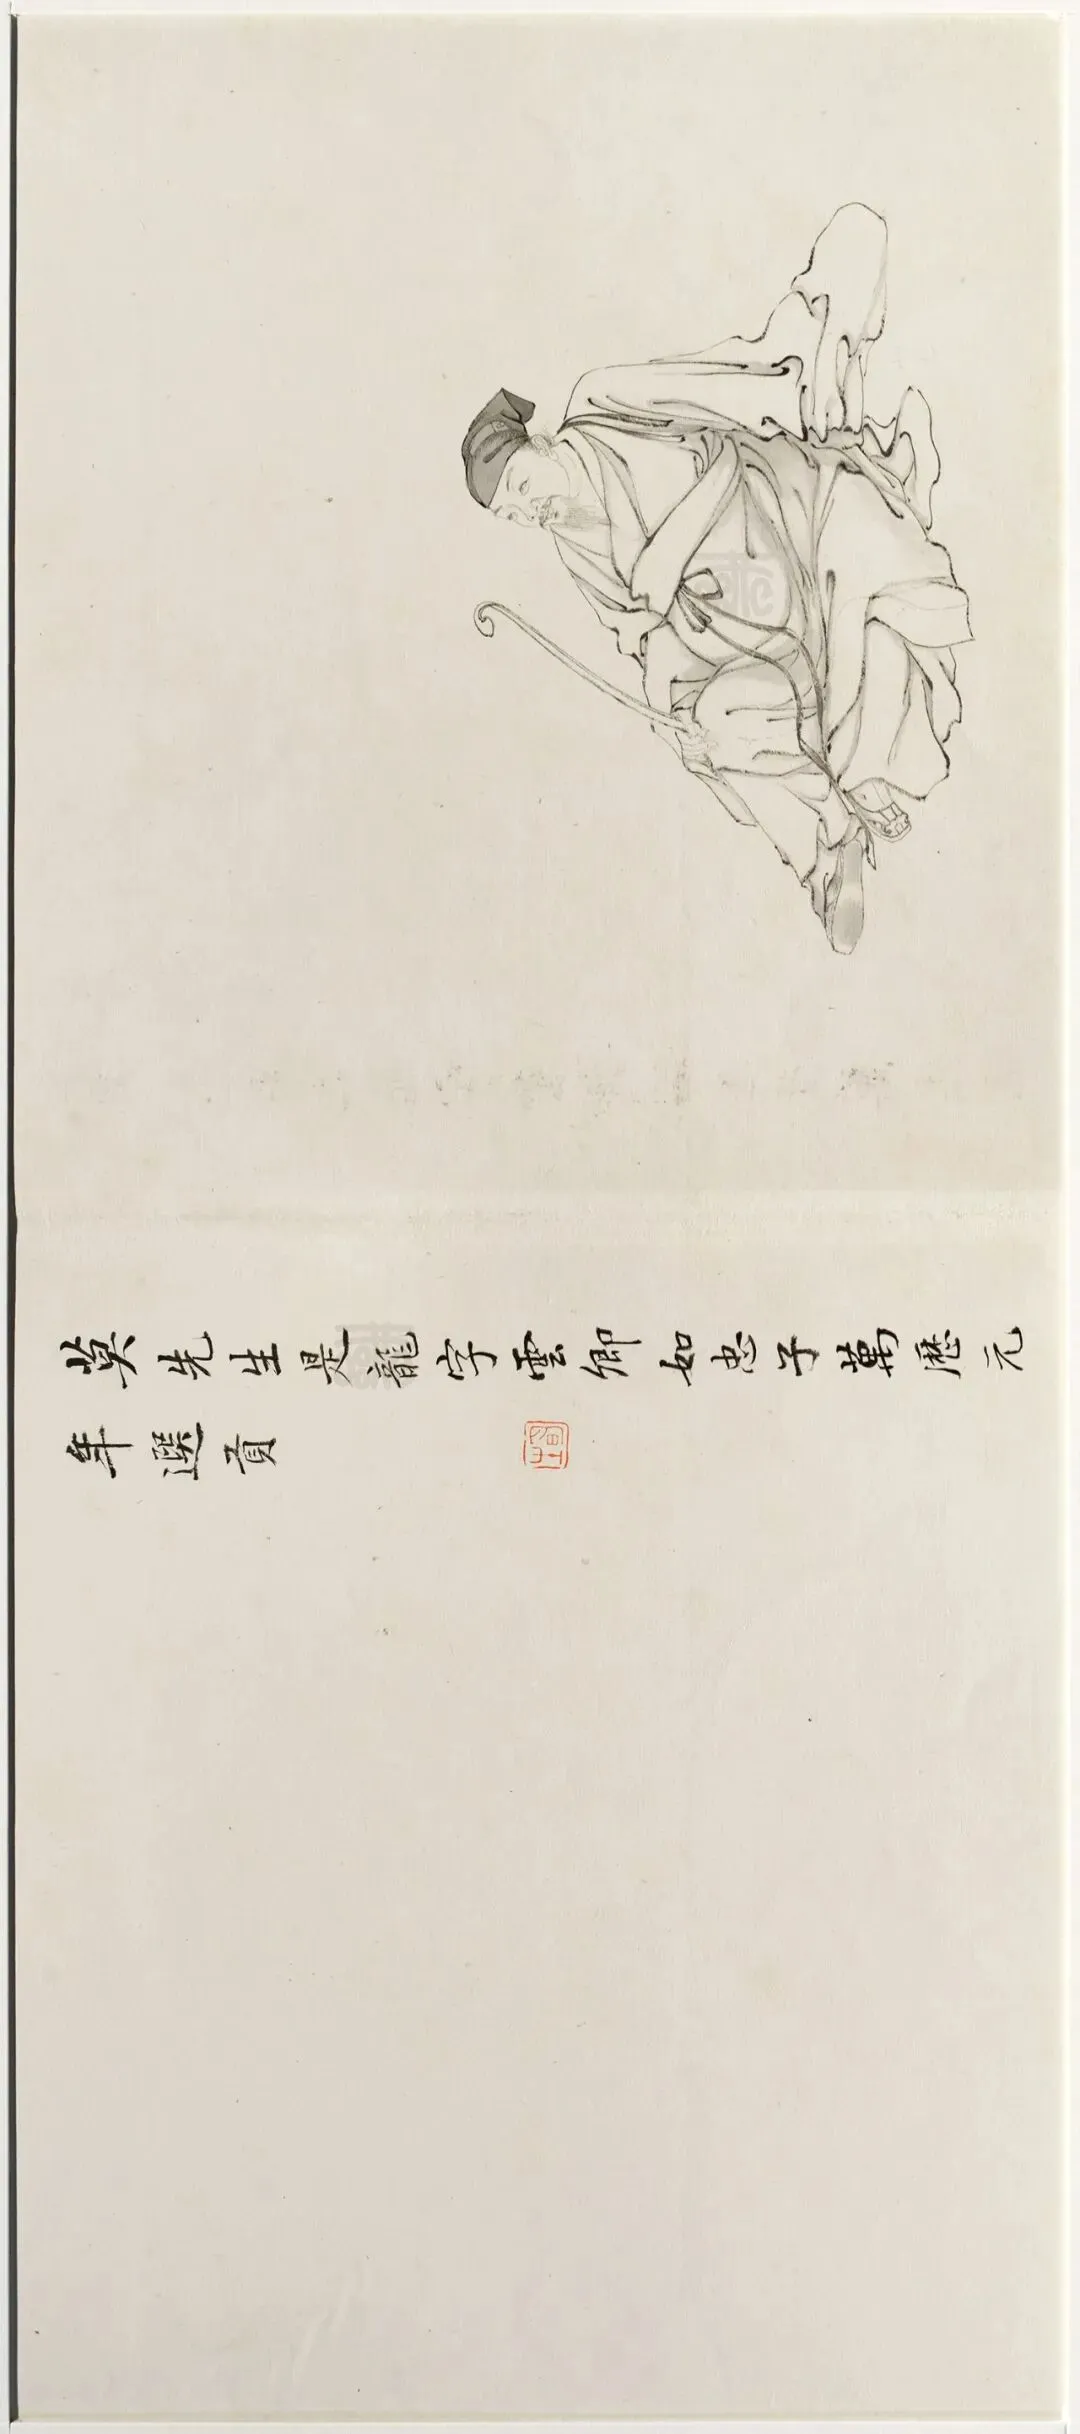 莫先生是龍字雲卿如忠子萬歷元
年選貢